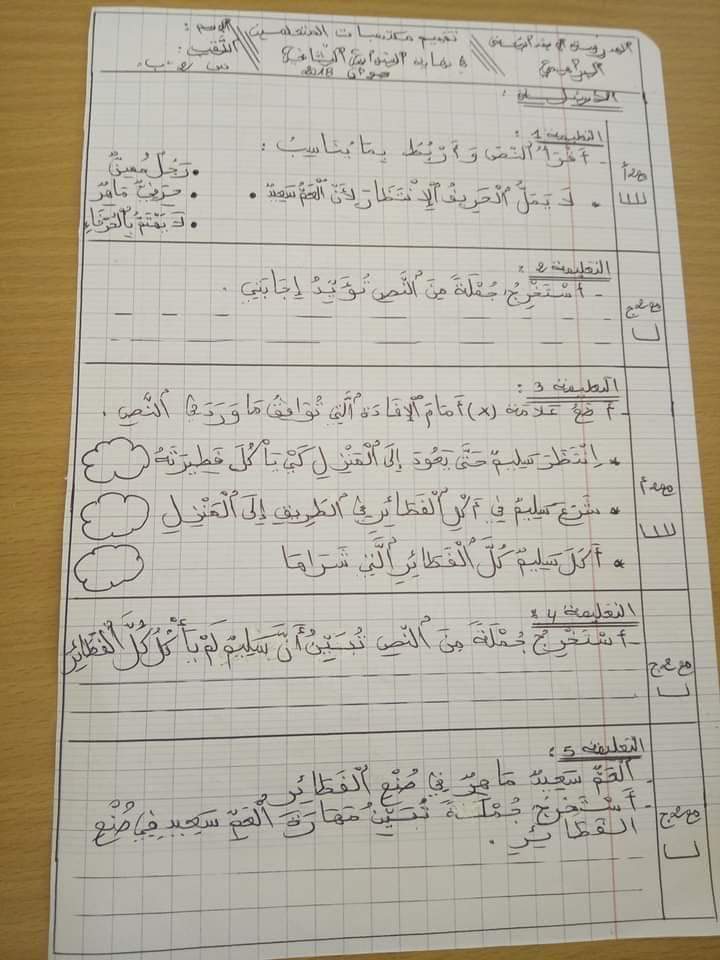 المدرسة الابتدائية
تقييم مكتسبات المتعلمين
الاسم :
اللقب :
في نهاية الثلاثي الثالث
جوان 2018
س 2 ب
الأسئلة :
التعليمة 1 :
- أَقْرَأُ النَّصَّ وَأَرْبُطُ بِمَا يُنَاسِبُ :
• رَجُلٌ مُسِنٌّ
• لَا يَمَلُّ الْحَرِيفُ الْاِنْتِظَارَ لِأَنَّ الْعَمَّ سَعِيد •
• حِرَفِيٌّ مَاهِرٌ
• لَا يَهْتَمُّ بِالْحُرَفَاءِ
مع 2 أ
التعليمة 2 :
- أَسْتَخْرِجُ جُمْلَةً مِنَ النَّصِّ تُؤَيِّدُ إِجَابَتِي .
مع 2 ج
التعليمة 3 :
- أَضَعُ عَلَامَةَ (x) أَمَامَ الْإِفَادَةِ الَّتِي تُوَافِقُ مَا وَرَدَ فِي النَّصِّ .
* اِنْتَظَرَ سَلِيمٌ حَتَّى يَعُودَ إِلَى الْمَنْزِلِ كَيْ يَأْكُلَ فَطِيرَتَهُ
* شَرَعَ سَلِيمٌ فِي أَكْلِ الْفَطَائِرِ فِي الطَّرِيقِ إِلَى الْمَنْزِلِ
* أَكَلَ سَلِيمٌ كُلَّ الْفَطَائِرِ الَّتِي شَرَاهَا
مع 2 أ
التعليمة 4 :
- أَسْتَخْرِجُ جُمْلَةً مِنَ النَّصِّ تُبَيِّنُ أَنَّ سَلِيمٌ لَمْ يَأْكُلْ كُلَّ الْفَطَائِرِ
مع 2 ج
التعليمة 5 :
- الْعَمُّ سَعِيدٌ مَاهِرٌ فِي صُنْعِ الْفَطَائِرِ
- أَسْتَخْرِجُ جُمْلَةً تُبَيِّنُ مَهَارَةَ الْعَمِّ سَعِيد فِي صُنْعِ
الفَطَائِرِ .
مع 2 ج